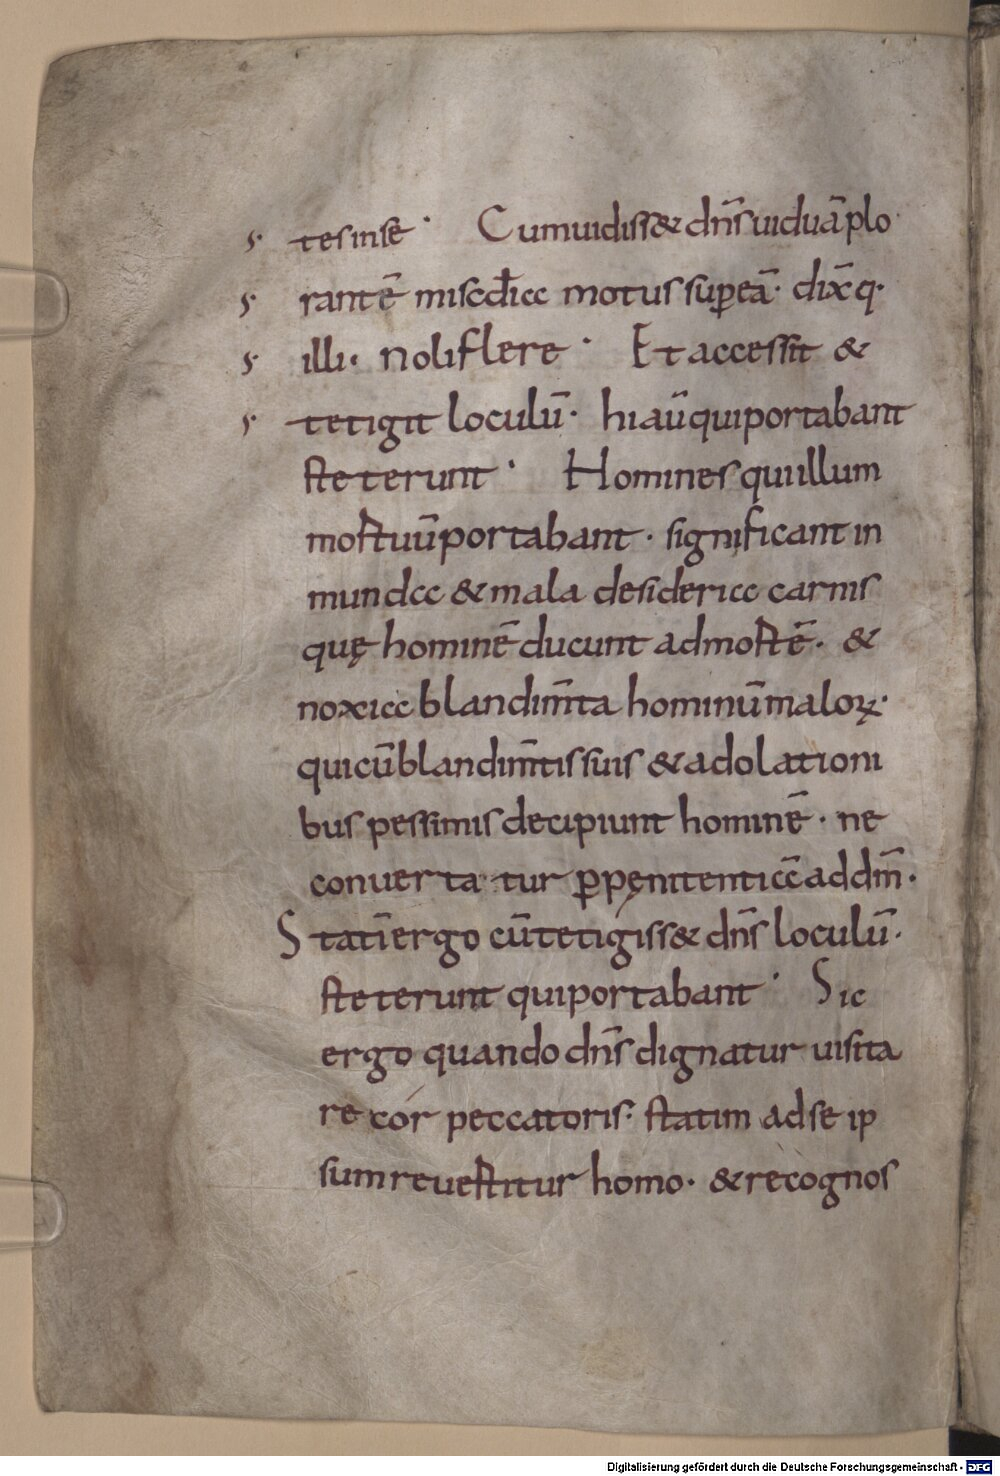 tes inse · Cum uidiss& dn̄s uiduā plo
rantē misc̄dia motus sup̄ eā · dix̄ q·
illi · Noli flere · Et accessit &
tetigit loculū · hi aū qui portabant
steterunt · Homines qui illum
mortuū portabant · significant in
munda & mala desideria carnis
quę hominē ducunt ad mortē · &
noxia blandim̄ta hominū maloꝝ ·
qui cū blandim̄tis suis & adolationi
bus pessimis decipiunt hominē · ne
conuerta tur ꝑ pęnitentiā ad dm̄ ·
Statī ergo cū tetigiss& dn̄s loculū ·
steterunt qui portabant · Sic
ergo quando dn̄s dignatur uisita
re cor peccatoris · statim ad se ip
sum reuertitur homo · & recognos
Digitalisierung gefördert durch die Deutsche Forschungsgemeinschaft - DFG